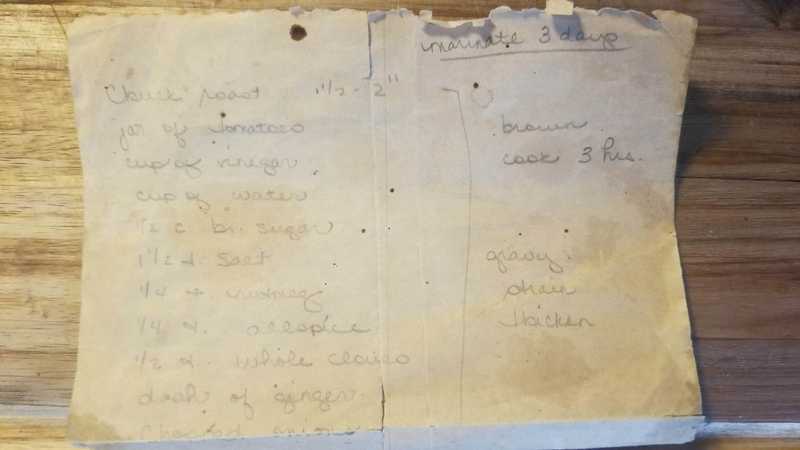 marinate 3 days
Chuck roast 1 1/2 - 2"
jar of tomatoes
cup of vinegar
cup of water
1/2 c br. sugar
1 1/2 t. salt
1/4 t nutmeg
1/4 t. allspice
1/2 t. whole cloves
dash of ginger
Chopped onions
brown
cook 3 hrs.
gravy:
drain
thicken